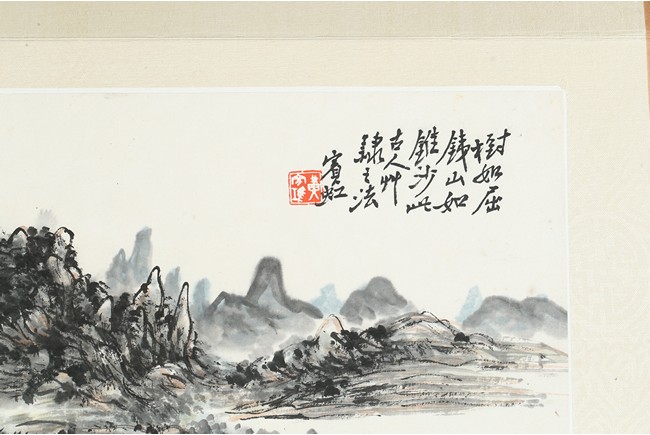 樹如屈
鐵山如
錐沙此
古人艸
隸之法
賓虹
黃